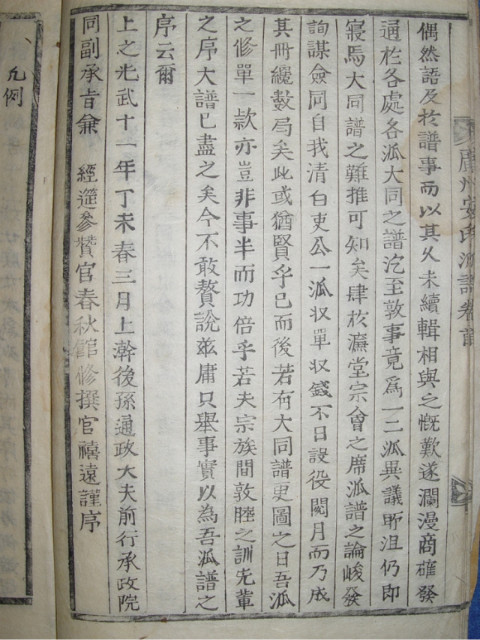 廣州安氏派譜卷首
偶然語及於譜事而以其久未續輯相與之慨歎遂瀾漫商確發
通於各處各派大同之譜汔至敦事竟爲一二派異議所沮仍即
寢焉大同譜之難推可知矣肆於堂宗會之席派譜之論峻發
詢謀僉同自我清白吏公一派收單収錢不日設役閱月而乃成
其冊纔數局矣此或猶賢乎已而後若有大同譜更圖之日吾派
之修單一款亦豈非事半而功倍乎若夫宗族間敦睦之訓先輩
之序大譜已盡之矣今不敢贅說玆庸只舉事實以為吾派譜之
序云爾
上之光武十一年丁未春三月上澣後孫通政大夫前行承政院
同副承旨兼 經筵參贊官春秋館修撰官禧遠謹序
凡例